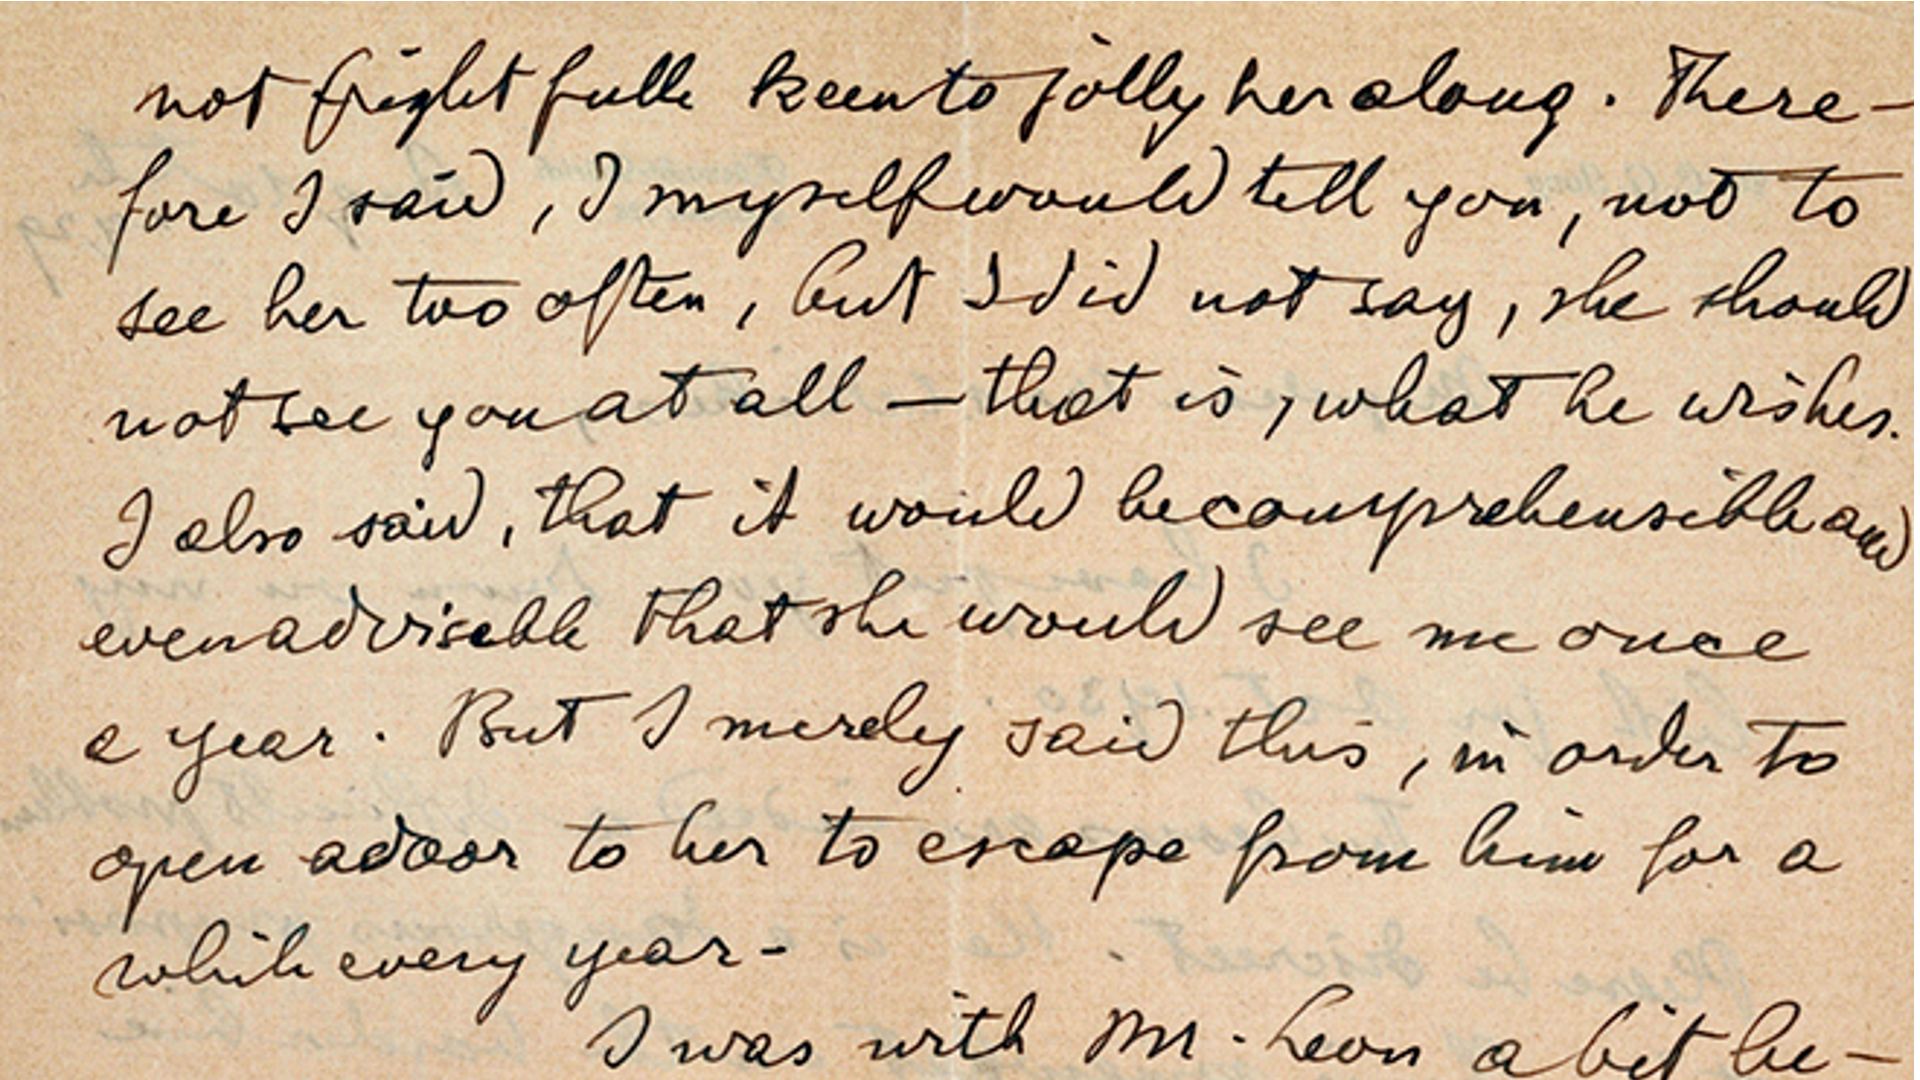 not frightfulle keen to jolly her along. There-
fore I said, I myself would tell you, not to
see her too often, but I did not say, she should
not see you at all – that is, what he wishes.
I also said, that it would be comprehensible and
even advisable that she would see me once
a year. But I merely said this, in order to
open a door to her to escape from him for a
while every year -
I was with M. Leon a bit be-